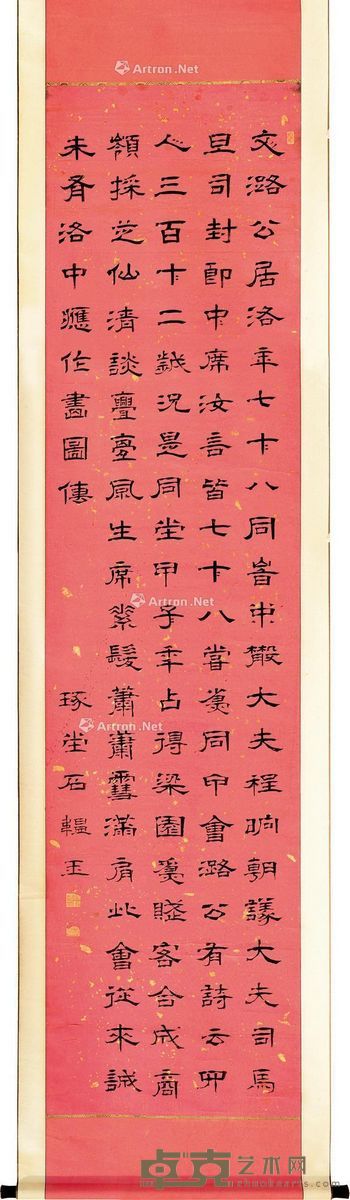 文潞公居洛年七十八同時中散大夫程珦朝議大夫司馬
旦司封郎中席汝言皆七十八嘗為同甲會潞公有詩云四
人三百十二歲況是同生甲子年占得梁園為賦客合成商
嶺採芝仙清談亹亹風生席素髮蕭蕭雪滿肩此會從來誠
未有洛中應作畫圖傳
琢堂石韞玉
Artron.Net
Artron.Net
Artron.Net
卓克艺术网